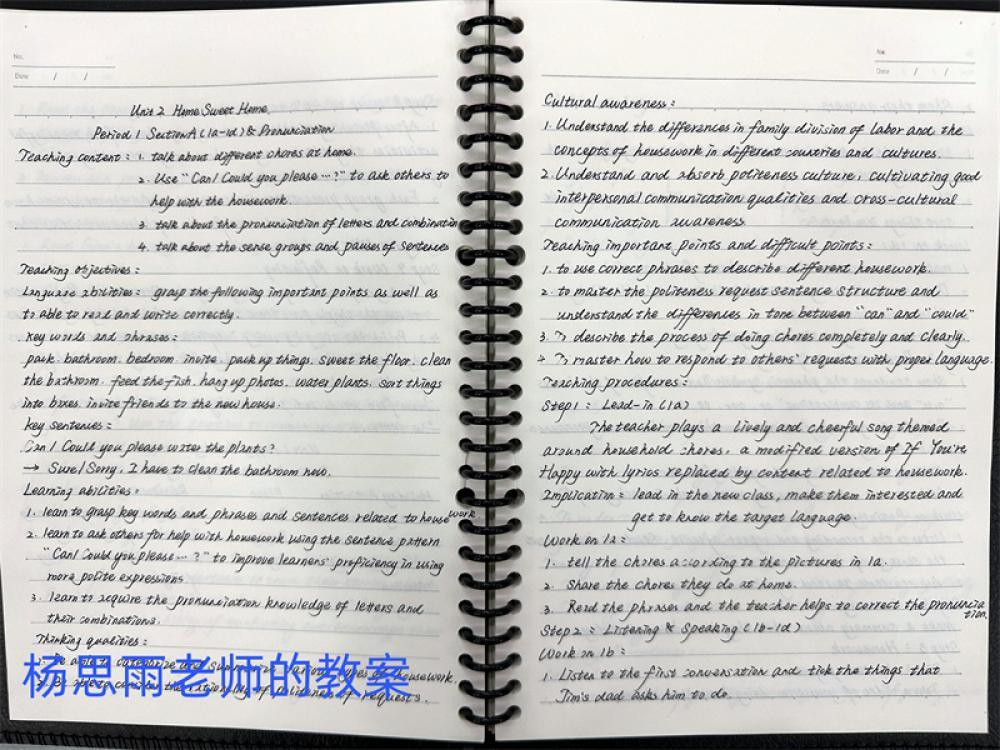 No.
Date / /
Unit 2 Home Sweet Home
Period 1 Section A (1a-1d) & Pronunciation
Teaching content: 1. talk about different chores at home.
2. Use "Can/Could you please …?" to ask others to
help with the housework
3. talk about the pronunciation of letters and combination
4. talk about the sense groups and pauses of sentences
Teaching objectives:
Language abilities: grasp the following important points as well as
to able to read and write correctly.
Key words and phrases:
park. bathroom. bedroom. invite. pack up things. sweet the floor. clean
the bathroom. feed the fish. hang up photos. water plants. sort things
into boxes. invite friends to the new house.
Key sentences:
Can/Could you please water the plants?
→ Sure/Sorry, I have to clean the bathroom now.
Learning abilities:
1. learn to grasp key words and phrases and sentences related to housework
2. learn to ask others for help with housework using the sentence pattern
"Can/Could you please …?" to improve learners' proficiency in using
more polite expressions
3. learn to acquire the pronunciation knowledge of letters and
their combinations.
Thinking qualities:
to categorize and of housework.
of politeness of requests.
杨思雨老师的教案
No.
Date / /
Cultural awareness:
1. Understand the differences in family division of labor and the
concepts of housework in different countries and cultures.
2. Understand and absorb politeness culture, cultivating good
interpersonal communication qualities and cross-cultural
communication awareness.
Teaching important points and difficult points:
1. to use correct phrases to describe different housework.
2. to master the politeness request sentence structure and
understand the differences in tone between "can" and "could"
3. To describe the process of doing chores completely and clearly.
To master how to respond to others' requests with proper language.
Teaching procedures:
Step1: Lead-in (1a)
The teacher plays a lively and cheerful song themed
around household chores, a modified version of If You're
Happy with lyrics replaced by content related to housework.
Implication: lead in the new class, make them interested and
get to know the target language.
Work on 1a:
1. tell the chores according to the pictures in 1a.
2. Share the chores they do at home.
3. Read the phrases and the teacher helps to correct the pronunciation.
Step 2: Listening & Speaking (1b-1d)
Work on 1b:
1. Listen to the first conversation and tick the things that
Jim's dad asks him to do.